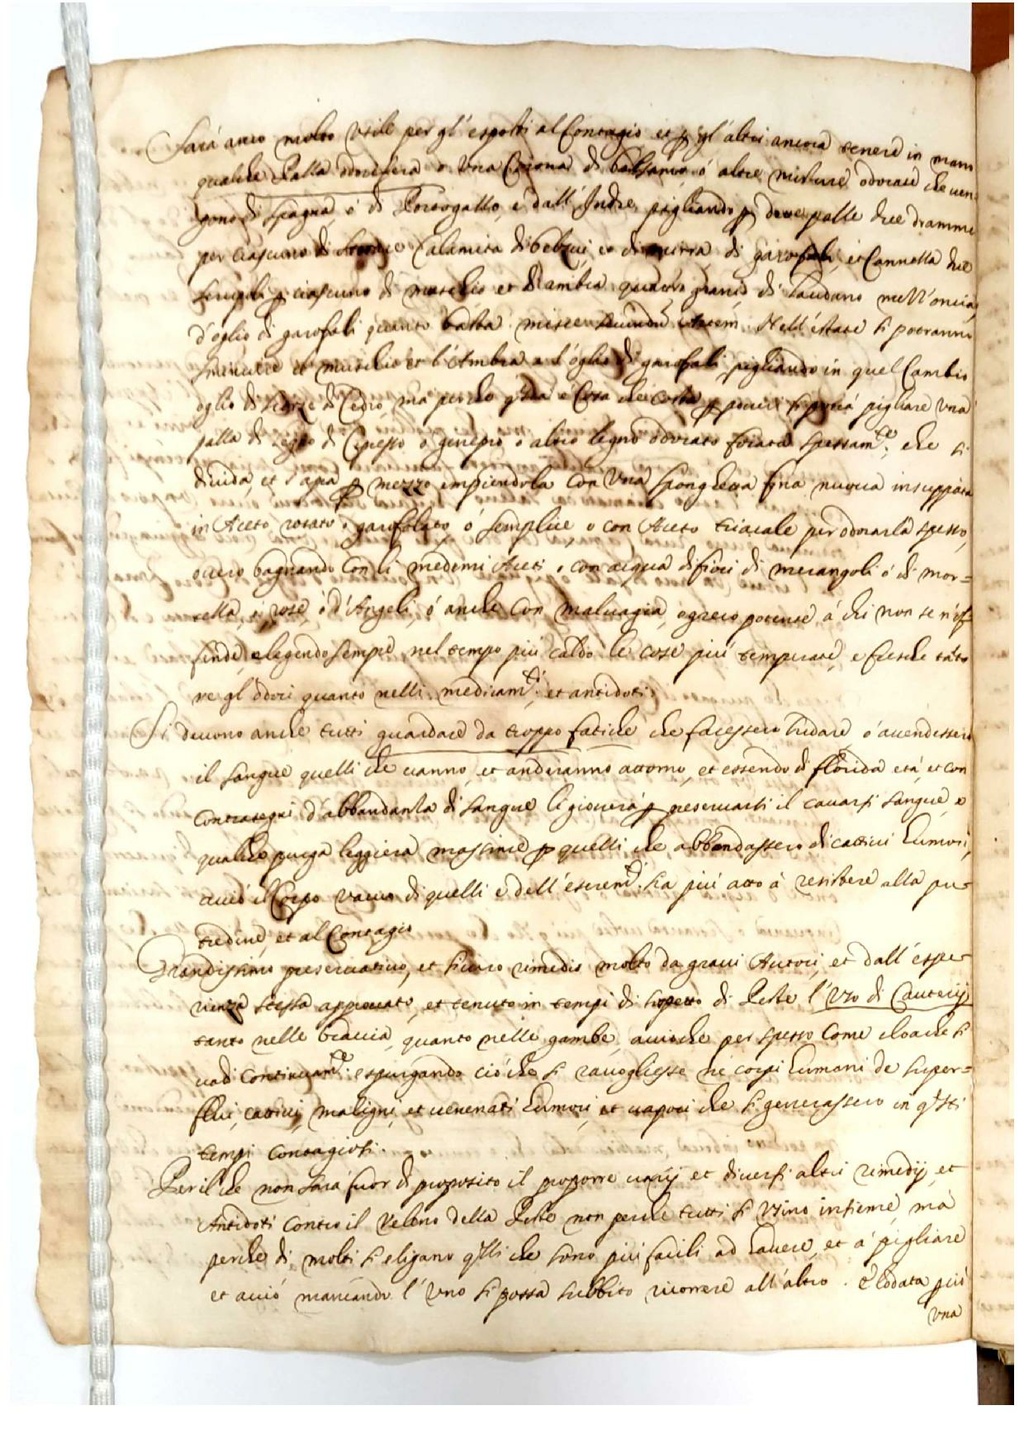 Sarà anco molto utile per gl'esposti al Contagio et p gl'altri ancora tenere in mano
qualche Palla odorifera o una Corona di balsamo ó altre misture odorate che ven-
gono di Spagna ó di Portogallo, e dall'Indie, pigliando p dette palle due dramme
per ciascuno di Storace Calamita di belzuì, et di mirra di garofali, et Cannella due
scrupoli p ciascuno di muschio et d'ambra quattro grani di laudano mezz'oncia
d'oglio di garofali quanto basta misce secundū Artem. Nell'estate si potranno
sminuire il muschio et l'Ambra e l'oglio di garofali, pigliando in quel Cambio
oglio di scorze di Cedro, mà perche q.sta è Cosa che costa p poveri si potrà pigliare una
palla di legno di Cipresso o ginepro o altro legno odorato forata spessam.te, che si
divida, et s'apra p mezzo empiendola con una sponghetta fina nuova insuppata
in Aceto rosato o garofolato, ó semplice, o con Aceto triacale per odorarla spesso,
overo bagnando con li medemi Aceti o con acqua di fiori di merangoli ó di mor=
tella, e rose, ó d'Angeli, ó anche con malvagia, ó greco potente á chi non se n'of-
fende, elegendo sempre, nel tempo più caldo le cose più temperate, e fresche tāto
ne gl'odori quanto nelli medicam.ti et antidoti.
Si devono anche tutti guardare da troppo fatiche che facessero sudare, ó accendessero
il sangue quelli che vanno, et anderanno attorno, et essendo di florida età, et con
contrasegni d'abbondanza di sangue le gioverà p preservarsi il cavarsi sangue, e
qualche purga leggiera massime p quelli che abbondassero di cattivi humori,
acciò il Corpo vacuo di quelli e dell'escrem.ti sia più atto à resistere alla pu-
tredine, et al Contagio
Grandissimo preservativo, et sicuro rimedio molto da gravi Autori, et dall'espe-
rienza stessa approvato, et tenuto in tempi di sospetto di Peste l'uso di Cauterij
tanto nelle braccia, quanto nelle gambe, acciochè per spesso come cloache si
vadi continuam.te espurgando ciò che si racogliesse ne corpi humani de super=
flui, cattivi, maligni, et venenati humori, et vapori che si generassero in q.sti
tempi contagiosi.
Per il che non sarà fuor di proposito il proporre varij et diversi altri rimedij, et
Antidoti contro il veleno della Peste non perche tutti si usino insieme, mà
perche di molti si eligano q.lli che sono più facili ad havere, et á pigliare
et acciò mancando l'uno si possa subbito ricorrere all'altro. È lodata p più
una